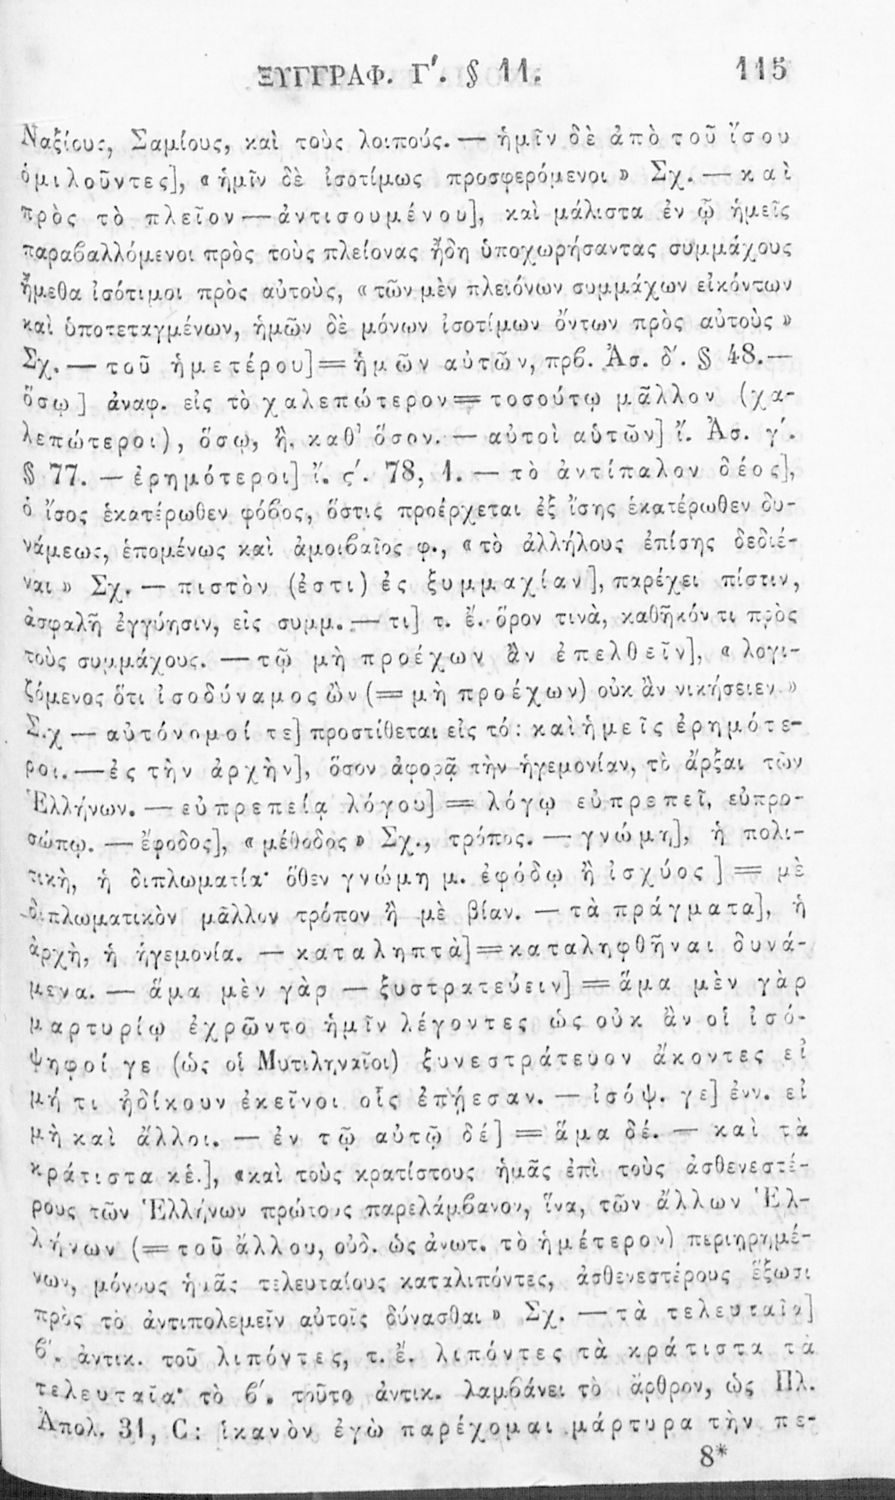 ΞΥΓΓΡΑΦ. Γʹ. § 11. 115
Ναξίους, Σαμίους, καὶ τοὺς λοιπούς. — ἡμῖν δὲ ἀπὸ τοῦ ἴσου
ὁμιλοῦντες], « ἡμῖν δὲ ἰσοτίμως προσφερόμενοι » Σχ. — καὶ
πρὸς τὸ πλεῖον — ἀντισουμένου], καὶ μάλιστα ἐν ᾧ ἡμεῖς
παραβαλλόμενοι πρὸς τοὺς πλείονας ἤδη ὑποχωρήσαντας συμμάχους
ἤμεθα ἰσότιμοι πρὸς αὐτοὺς, « τῶν μὲν πλειόνων συμμάχων εἰκόντων
καὶ ὑποτεταγμένων, ἡμῶν δὲ μόνων ἰσοτίμων ὄντων πρὸς αὐτοὺς »
Σχ. — τοῦ ἡμετέρου] = ἡμῶν αὐτῶν, πρβ. Ἀσ. δʹ. § 48. —
ὅσῳ] ἀναφ. εἰς τὸ χαλεπώτερον = τοσούτῳ μᾶλλον (χα-
λεπώτεροι), ὅσῳ, ἢ. καθ' ὅσον. — αὐτοὶ αὑτῶν] ἴ. Ἀσ. γʹ.
§ 77. — ἐρημότεροι] ἴ. ςʹ. 78, 1. — τὸ ἀντίπαλον δέος],
ὁ ἴσος ἑκατέρωθεν φόβος, ὅστις προέρχεται ἐξ ἴσης ἑκατέρωθεν δυ-
νάμεως, ἑπομένως καὶ ἀμοιβαῖος φ., « τὸ ἀλλήλους ἐπίσης δεδιέ-
ναι » Σχ. — πιστὸν (ἐστι) ἐς ξυμμαχίαν], παρέχει πίστιν,
ἀσφαλῆ ἐγγύησιν, εἰς συμμ. — τι] τ. ἔ. ὅρον τινὰ, καθῆκόν τι πρὸς
τοὺς συμμάχους. — τῷ μὴ προέχων ἂν ἐπελθεῖν], « λογι-
ζόμενος ὅτι ἰσοδύναμος ὢν (= μὴ προέχων) οὐκ ἂν νικήσειεν »
Σ.χ — αὐτόνομοί τε] προστίθεται εἰς τό: καὶ ἡμεῖς ἐρημότε-
ροι. — ἐς τὴν ἀρχὴν], ὅσον ἀφορᾷ τὴν ἡγεμονίαν, τὸ ἄρξαι τῶν
Ἑλλήνων. — εὐπρεπείᾳ λόγου] = λόγῳ εὐπρεπεῖ, εὐπρο-
σώπῳ. — ἔφοδος], « μέθοδος » Σχ., τρόπος. — γνώμῃ], ἡ πολι-
τικὴ, ἡ διπλωματία· ὅθεν γνώμῃ μ. ἐφόδῳ ἢ ἰσχύος] = μὲ
διπλωματικὸν μᾶλλον τρόπον ἢ μὲ βίαν. — τὰ πράγματα], ἡ
ἀρχὴ, ἡ ἡγεμονία. — καταληπτὰ] = καταληφθῆναι δυνά-
μενα. — ἅμα μὲν γὰρ — ξυστρατεύειν] = ἅμα μὲν γὰρ
μαρτυρίῳ ἐχρῶντο ἡμῖν λέγοντες ὡς οὐκ ἂν οἱ ἰσό-
ψηφοί γε (ὡς οἱ Μυτιληναῖοι) ξυνεστράτευον ἄκοντες εἰ
μή τι ἠδίκουν ἐκεῖνοι οἷς ἐπῄεσαν. — ἰσόψ. γε] ἐνν. εἰ
μὴ καὶ ἄλλοι. — ἐν τῷ αὐτῷ δέ] = ἅμα δέ. — καὶ τὰ
κράτιστα κἑ.], «καὶ τοὺς κρατίστους ἡμᾶς ἐπὶ τοὺς ἀσθενεστέ-
ρους τῶν Ἑλλήνων πρώτους παρελάμβανον, ἵνα, τῶν ἄλλων Ἑλ-
λήνων (= τοῦ ἄλλου, οὐδ. ὡς ἀνωτ. τὸ ἡμέτερον) περιῃρημέ-
νων, μόνους ἡμᾶς τελευταίους καταλιπόντες, ἀσθενεστέρους ἕξωσι
πρὸς τὸ ἀντιπολεμεῖν αὐτοῖς δύνασθαι » Σχ. — τὰ τελευταῖα]
βʹ. ἀντικ. τοῦ λιπόντες, τ. ἔ. λιπόντες τὰ κράτιστα τὰ
τελευταῖα· τὸ βʹ. τοῦτο ἀντικ. λαμβάνει τὸ ἄρθρον, ὡς Πλ.
Ἀπολ. 31, C: ἱκανὸν ἐγὼ παρέχομαι μάρτυρα τὴν πε-
8*